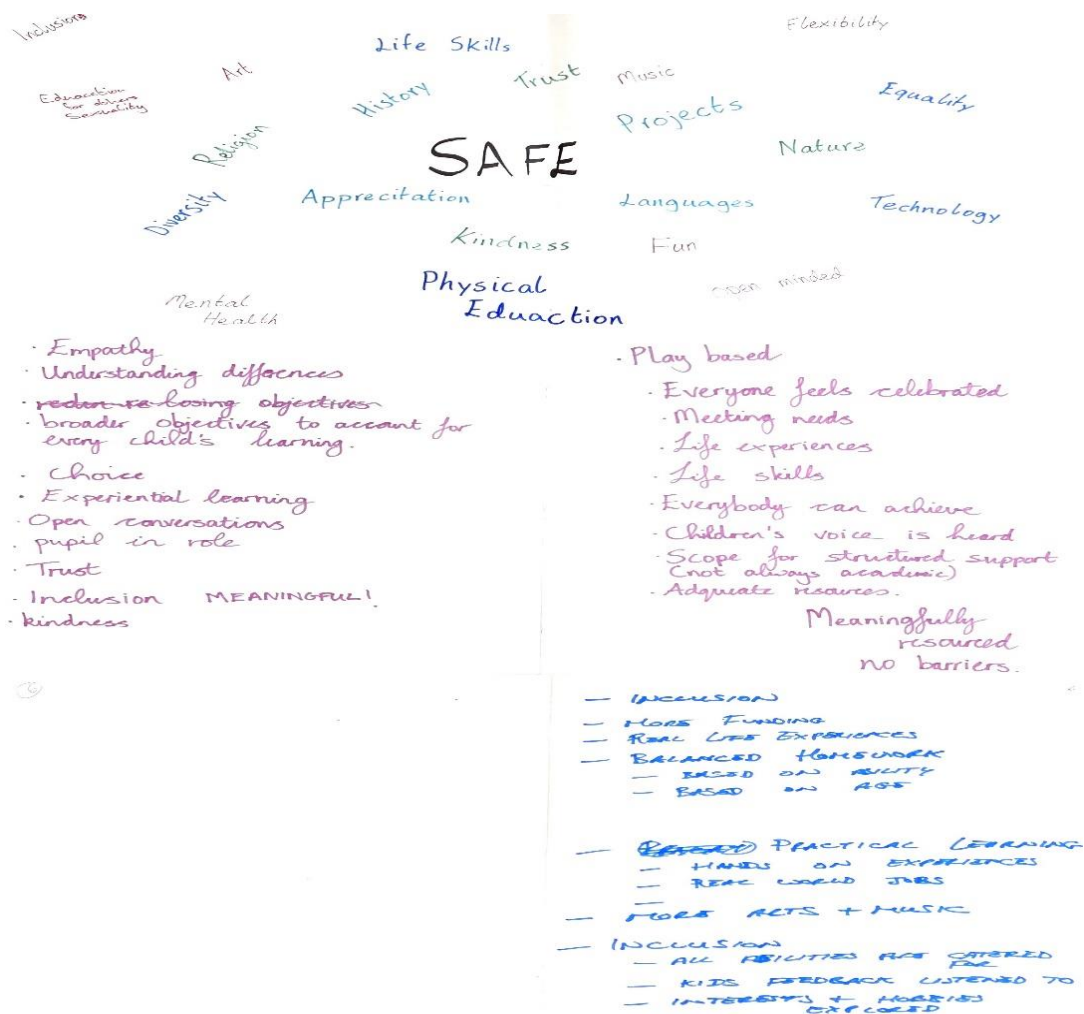 Inclusion
Flexibility
Life Skills
Art
Trust
Music
Eduacation
for others
Sexuality
History
Equality
Projects
Religion
SAFE
Nature
Diversity
Apprecitation
Languages
Technology
Kindness
Fun
Physical
Eduaction
Open minded
Mental
Health
· Empathy
· Understanding diffences
losing objectives
· broader objectives to account for
every child's learning.
· Choice
· Experiential learning
· Open conversations
· pupil in role
· Trust
· Inclusion MEANINGFUL!
· kindness
· Play based
· Everyone feels celebrated
· Meeting needs
· Life experiences
· Life skills
· Everybody can achieve
· Children's voice is heard
· Scope for structured support
(not always academic)
· Adquate resources.
Meaningfully
resourced
no barriers.
— INCLUSION
— MORE FUNDING
— REAL LIFE EXPERIENCES
— BALANCED HOMEWORK
— BASED ON ABILITY
— BASED ON AGE
— PRACTICAL LEARNING
— HANDS ON EXPERIENCES
— REAL WORLD JOBS
—
— MORE ARTS + MUSIC
— INCLUSION
— ALL ABILITIES ARE CATERED
FOR
— KIDS FEEDBACK LISTENED TO
— INTERESTS + HOBBIES
EXPLORED